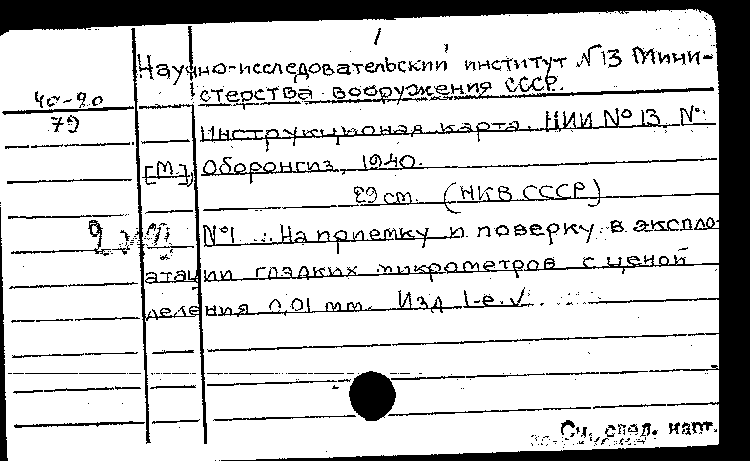 Научно-исследовательский институт №13 Мини-
стерства вооружения СССР.
40-20
79
Инструкционая карта. НИИ №13. №
[М.], Оборонгиз, 1940.
29 см. (НКВ СССР)
№1. На приемку и поверку в эксплоа-
атации гладких микрометров с ценой
деления 0,01 mm. Изд 1-е. √
См. след. карт.